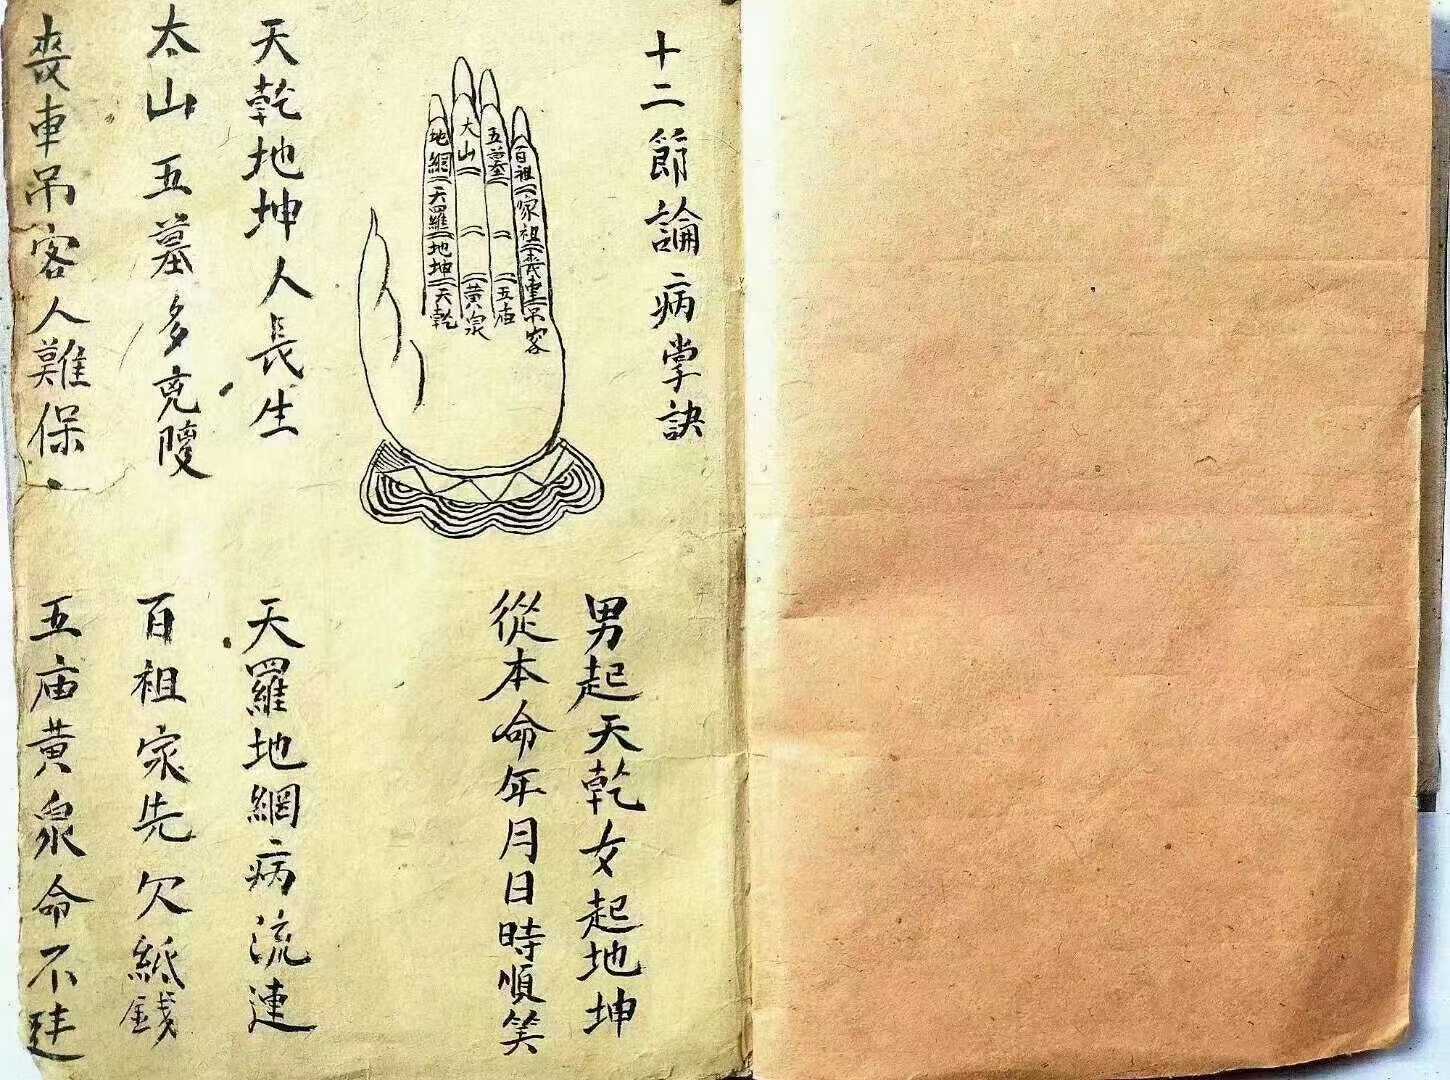 十二節論病掌訣
男起天乾女起地坤
從本命年月日時順笑
地網
天羅
地坤
天乾
大山
黄泉
五墓
五庙
百祖
家祖
喪車
吊客
天乾地坤人長生
天羅地網病流連
太山五墓多克陵
百祖家先欠紙錢
喪車吊客人難保
五庙黄泉命不